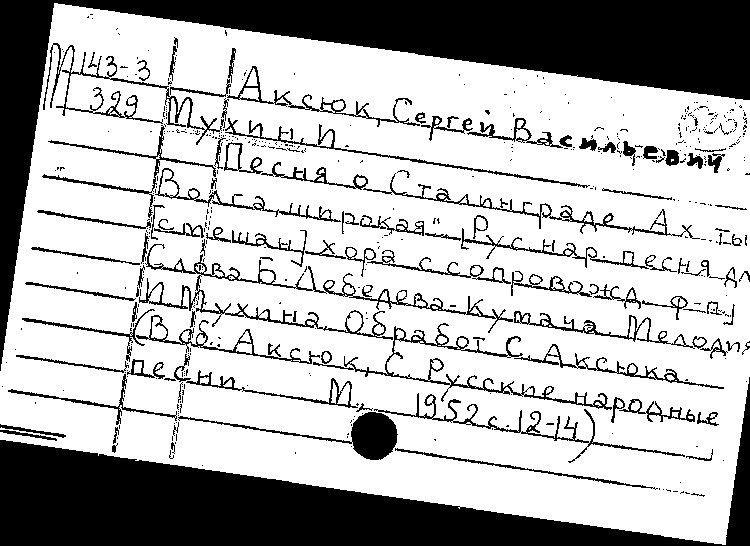 М 143-3
329
Аксюк, Сергей Васильевич.
Мухин, И.
Песня о Сталинграде. "Ах ты
Волга, широкая". [Рус. нар. песня дл
[смешан] хора с сопровожд. ф-п]
Слова Б. Лебедева-Кумача. Мелодия
И Мухина. Обработ С. Аксюка.
(В сб.: Аксюк, С. Русские народные
песни. М., 1952 с. 12-14)